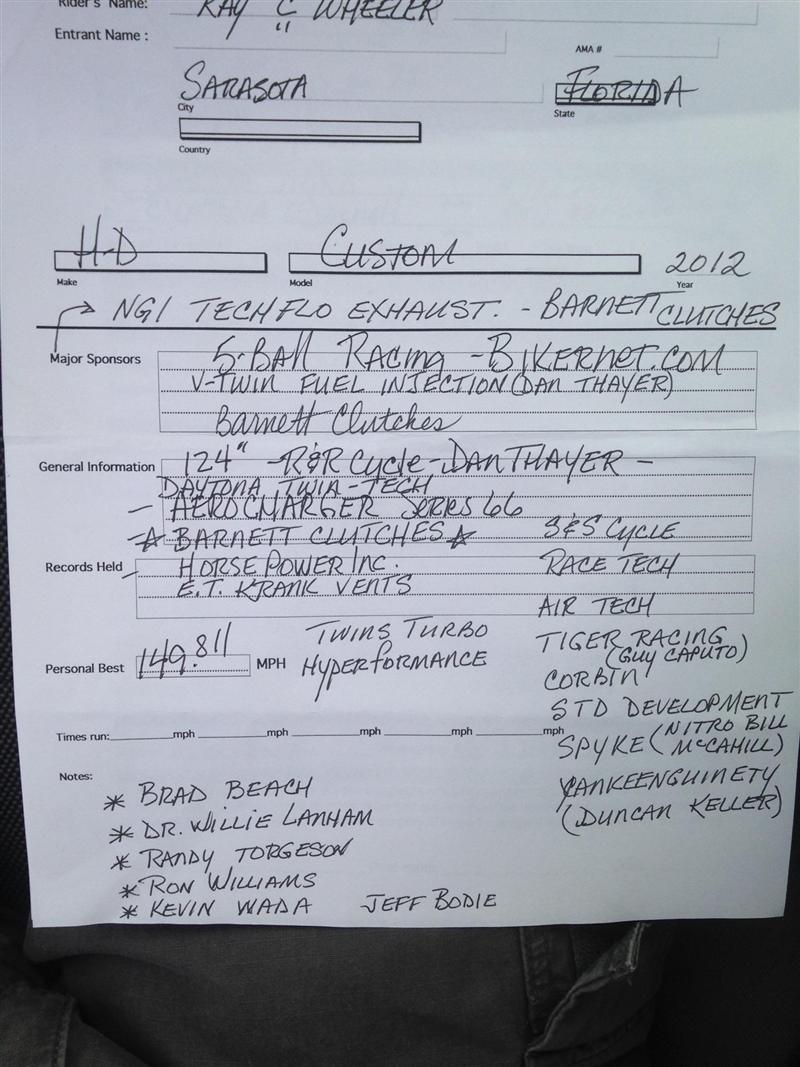 Rider's Name: RAY C WHEELER
Entrant Name :
AMA #
SARASOTA FLORIDA
City State
Country
H-D CUSTOM 2012
Make Model Year
NGI TECHFLO EXHAUST. - BARNETT CLUTCHES
Major Sponsors 5-Ball Racing - BIKERNET.COM
V-TWIN FUEL INJECTION (DAN THAYER)
Barnett Clutches
General Information 124" - R&R Cycle - DAN THAYER -
DAYTONA TWIN-TECH
- AEROCHARGER SERIES 66
- BARNETT CLUTCHES
S&S CYCLE
Records Held HORSEPOWER INC. RACE TECH
E.T. KRANK VENTS
AIR TECH
Personal Best 149.811 MPH
TWINS TURBO
HYPERFORMANCE
TIGER RACING
(GUY CAPUTO)
CORBIN
STD DEVELOPMENT
Times run: mph mph mph mph mph
SPYKE (NITRO BILL
McCAHILL)
YANKEENGUINETY
(DUNCAN KELLER)
Notes:
* BRAD BEACH
* DR. WILLIE LANHAM
* RANDY TORGESON
* RON WILLIAMS
* KEVIN WADA JEFF BODIE